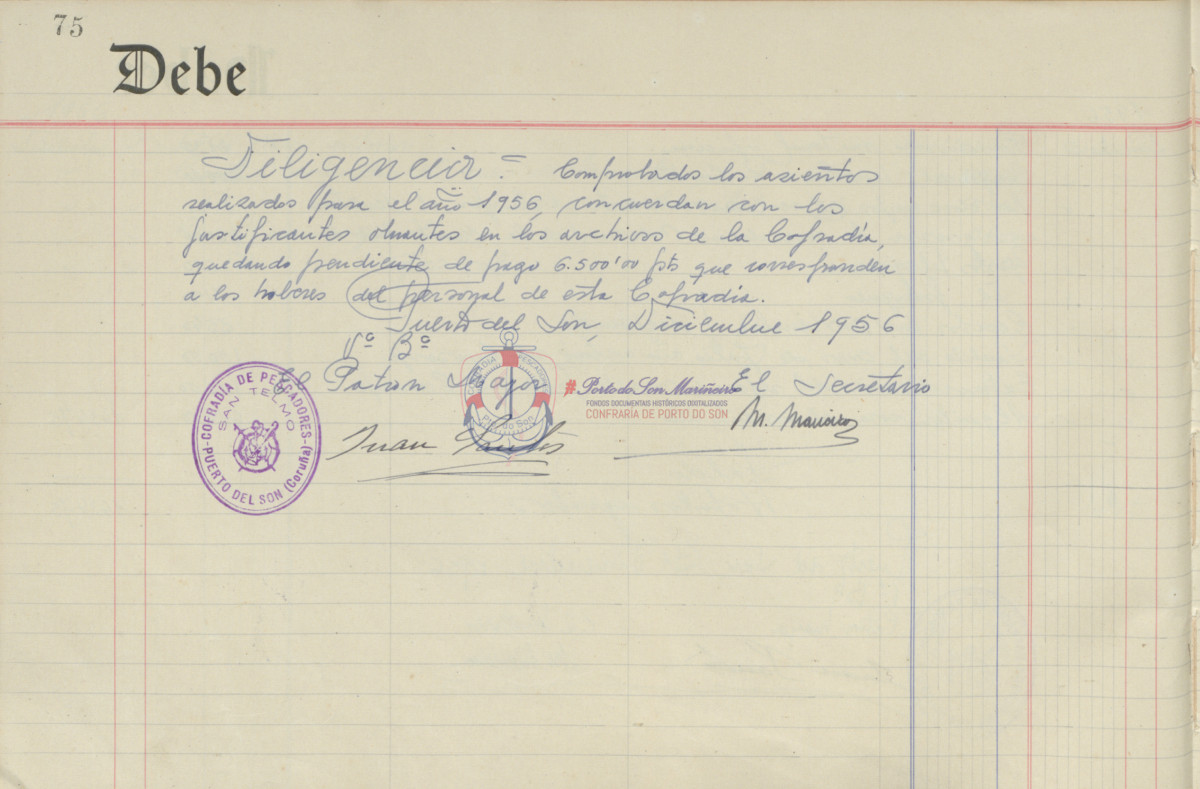 75
Debe
Diligencia = Comprobados los asientos
realizados para el año 1956, concuerdan con los
justificantes obrantes en los archivos de la Cofradía,
quedando pendiente de pago 6.500'00 pts que corresponden
a los haberes del personal de esta Cofradía.
Puerto del Son, Diciembre 1956
Vº Bº
El Patron Mayor El Secretario
Juan Santos M. Maneiro
COFRADIA DE PESCADORES
SAN TELMO
PUERTO DEL SON (Coruña)
COFRADÍA PESCADORES
Pto. do Son
# Porto do Son Mariñeiro
FONDOS DOCUMENTAIS HISTÓRICOS DIXITALIZADOS
CONFRARÍA DE PORTO DO SON